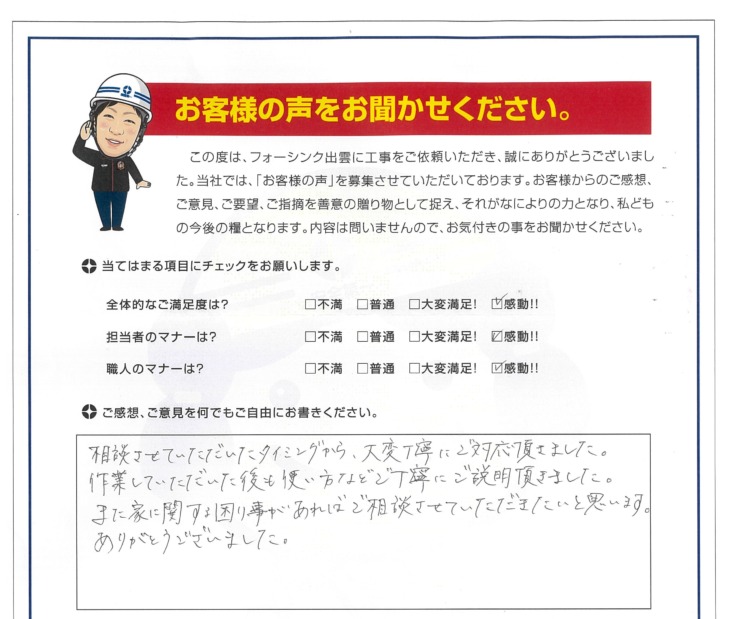 お客様の声をお聞かせください。
この度は、フォーシンク出雲に工事をご依頼いただき、誠にありがとうございまし
た。当社では、「お客様の声」を募集させていただいております。お客様からのご感想、
ご意見、ご要望、ご指摘を善意の贈り物として捉え、それがなによりの力となり、私ども
の今後の糧となります。内容は問いませんので、お気付きの事をお聞かせください。
当てはまる項目にチェックをお願いします。
全体的なご満足度は? □不満 □普通 □大変満足! ☑感動!!
担当者のマナーは? □不満 □普通 □大変満足! ☑感動!!
職人のマナーは? □不満 □普通 □大変満足! ☑感動!!
ご感想、ご意見を何でもご自由にお書きください。
相談させていただいたタイミングから、大変丁寧にご対応頂きました。
作業していただいた後も使い方などご丁寧にご説明頂きました。
また家に関する困り事があればご相談させていただきたいと思います。
ありがとうございました。